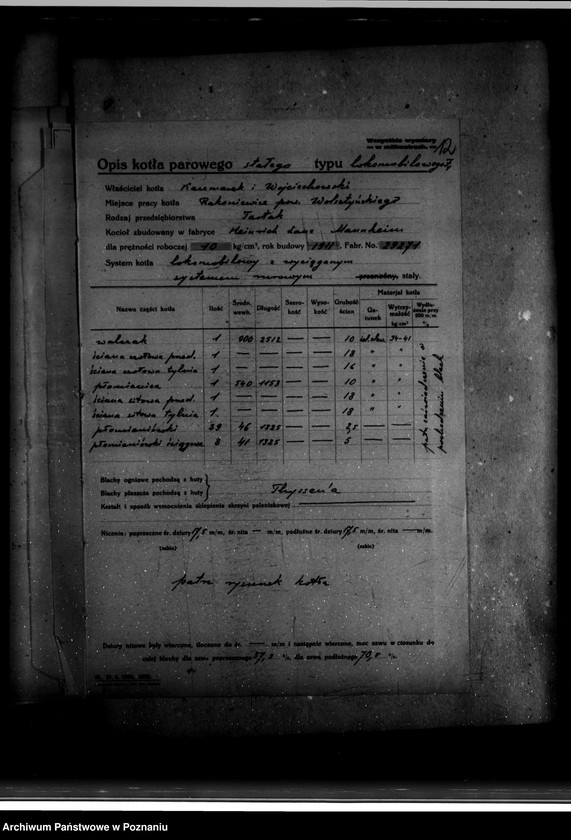 Wszystkie wymiary
w milimetrach.
12
Opis kotła parowego stałego typu lokomobilowego
Właściciel kotła Kaczmarek i Wojciechowski
Miejsce pracy kotła Rakoniewice pow. Wolsztyńskiego
Rodzaj przedsiębiorstwa Tartak
Kocioł zbudowany w fabryce Heinrich Lanz Mannheim
dla prężności roboczej 10 kg/cm², rok budowy 1911, Fabr. No. 28271
System kotła lokomobilowy z wyciąganym
systemem rurowym przenośny, stały.
Nazwa części kotła Ilość Średn. wewn. Długość Szerokość Wysokość Grubość ścian Materjał kotła
Gatunek Wytrzymałość kg/cm² Wydłużenie przy 200 m. m %
walczak 1 900 2512 — — 10 34-41
ściana sitowa przed. 1 — — — — 18 " "
ściana sitowa tylnia 1 — — — — 16 " "
płomienica 1 540 1153 — — 10 " "
ściana sitowa przed. 1 — — — — 18 " "
ściana sitowa tylnia 1 — — — — 18 " "
płomieniówki 29 46 1325 — — 2,5 — —
płomieniówki ściągowe 8 41 1325 — — 5 — —
patrz świadectwo o
pochodzeniu blach
Blachy ogniowe pochodzą z huty
Blachy płaszcza pochodzą z huty Thyssen'a
Kształt i sposób wzmocnienia sklepienia skrzyni paleniskowej —
Nicenie: poprzeczne śr. dziury 17,5 m/m, śr. nita — m/m, podłużne śr. dziury 17,5 m/m, śr. nita — m/m.
(szkic) (szkic)
patrz rysunek kotła
Dziury nitowe były wiercone, tłoczone do śr. — m/m i następnie wiercone, moc szwu w stosunku do
całej blachy dla szwu poprzecznego 57,2 %, dla szwu podłużnego 70,8 %.
Archiwum Państwowe w Poznaniu